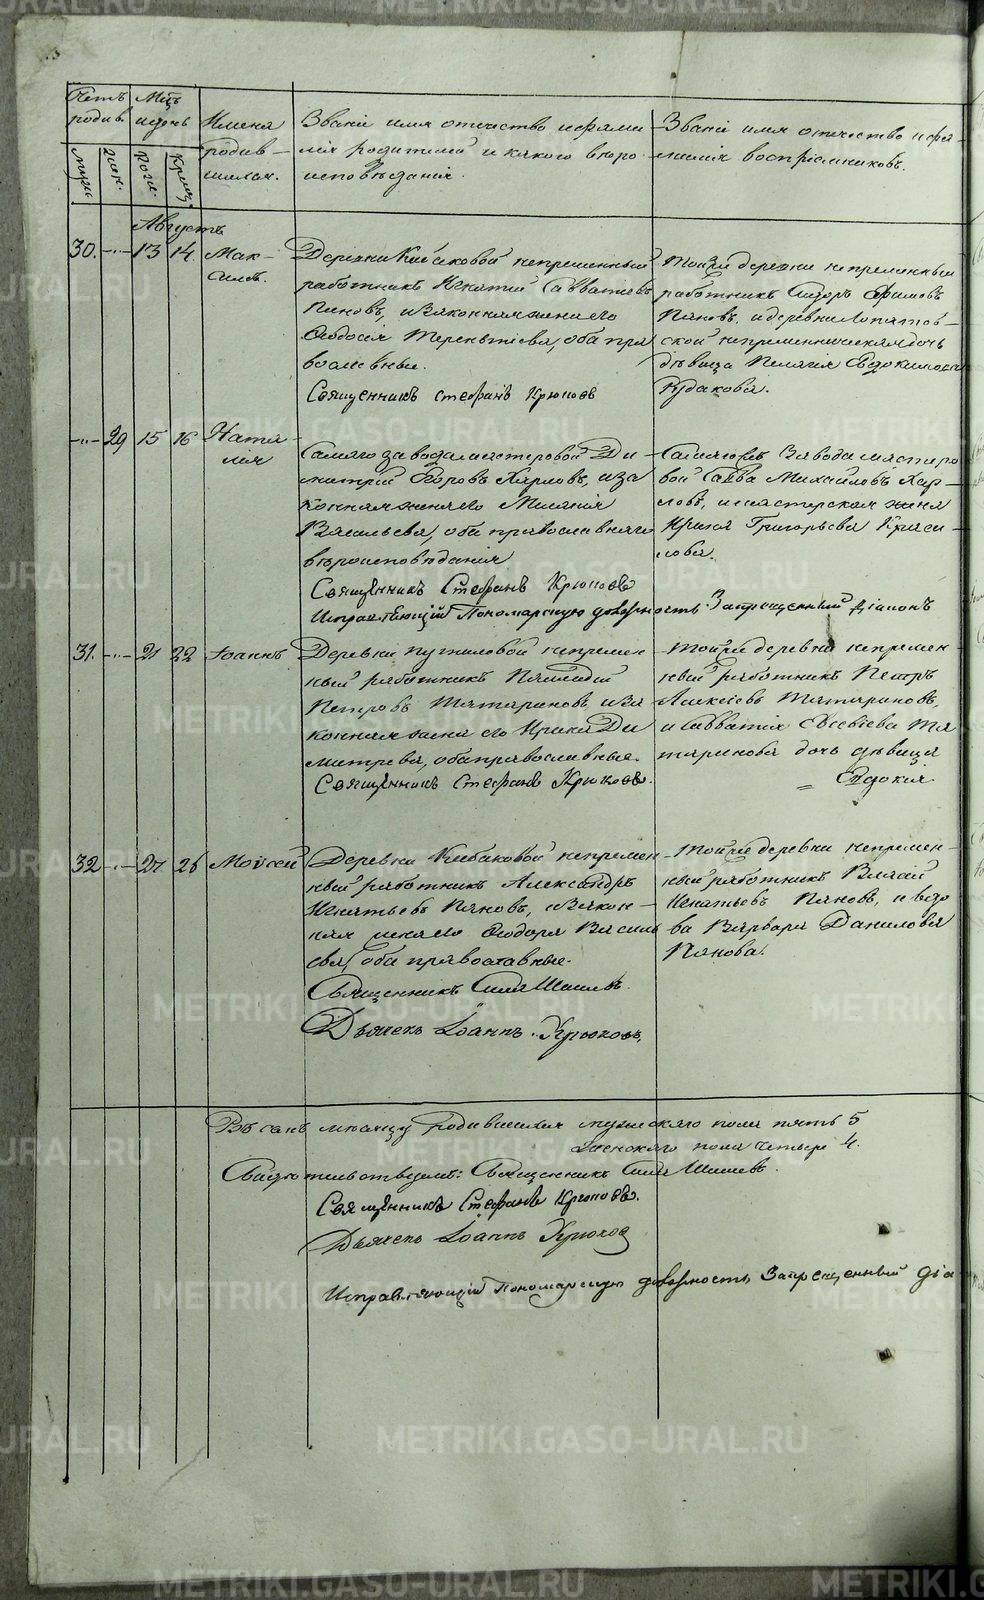 Счетъ родив.
Мцъ и день
Имена родив-шихся.
Званіе имя отчество и фами-
лія родителей и какого вѣро-
исповѣданія.
Званіе имя отчество и фа-
милія воспріемниковъ.
муж. жен. Рожд. Крещ.
Августъ
30. -..- 13 14 Мак-
симъ.
Деревни непременный
работникъ Игнатій Савватіевъ
Пяновъ, и законная жена его
Ѳеодосія Терентьева, оба пра
вославные.
Священникъ Стефанъ Крюковъ
Той же деревни непременный
работникъ Сидоръ Ефимовъ
Пяновъ, и деревни Лопатов-
ской непременническая дочь
дѣвица Пелагія Евдокимова
-..- 29 15 16 Ната-
лія
Самаго завода мастеровой Ди
митрій Егоровъ Карповъ, и за
конная жена его Меланія
Васильева, оба православнаго
вѣроисповѣданія
Священникъ Стефанъ Крюковъ
Исправляющій Пономарскую должность Запрещенный Діаконъ
Самаго завода мастеро
вой Савва Михайловъ Кар-
повъ, и мастерская жена
Ирина Григорьева Краси-
лова.
31. -..- 21 22 Іоаннъ
Деревни Путиловой непремен
ный работникъ
Петровъ Татариновъ, и за
конная жена его Ирина Ди
митрева, оба православные.
Священникъ Стефанъ Крюковъ.
Той же деревни непремен
ный работникъ Петръ
Алексеевъ Татариновъ,
и Савватія Евсевіева Та
таринова дочь дѣвица
Евдокія
32 -..- 27 28 Моѵсей
Деревни Кибаковой непремен
ный работникъ Александръ
Игнатьевъ Пяновъ, и закон-
ная жена его Ѳеодора Василь
ева, оба православные.
Священникъ Сила Шишевъ
Дьячекъ Іоаннъ Крюковъ.
Той же деревни непремен-
ный работникъ Власій
Игнатьевъ Пяновъ, и вдо
ва Варвара Данилова
Пянова.
Въ семъ мѣсяцѣ родившихся мужескаго пола пять 5
женскаго пола четыре 4.
Священникъ Сила Шишевъ.
Священникъ Стефанъ Крюковъ.
Дьячекъ Іоаннъ Крюковъ
Исправляющій Пономарскую должность Запрещенный діа
METRIKI.GASO-URAL.RU